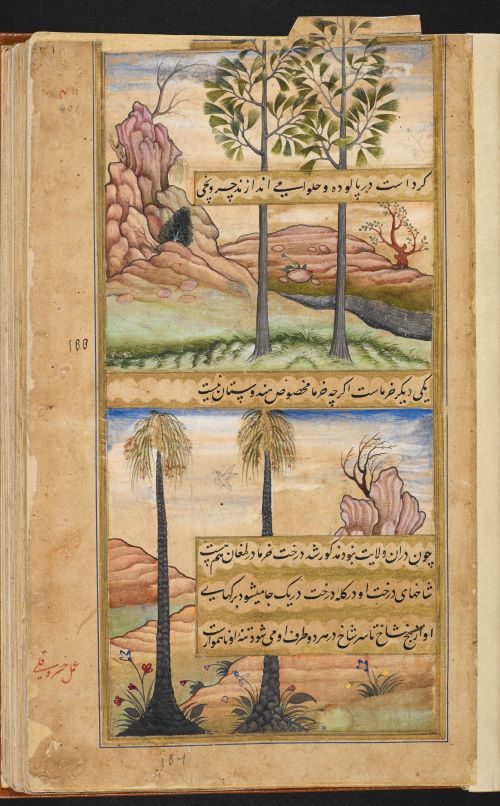 کرد است در پالوده و حلوا می اندازند چیرونجی
یکی دیگر خرماست اگرچه خرما مخصوص هندوستان نیست
چون در ان ولایت نبود مذکور شد درخت خرما در لمغان هم هست
شاخهای درخت او در کله درخت در یک جا میشود برگهای
او از بیخ شاخ تا سر شاخ در هر دو طرف او می شود تنه او ناهموار
عمل خسرو قلی